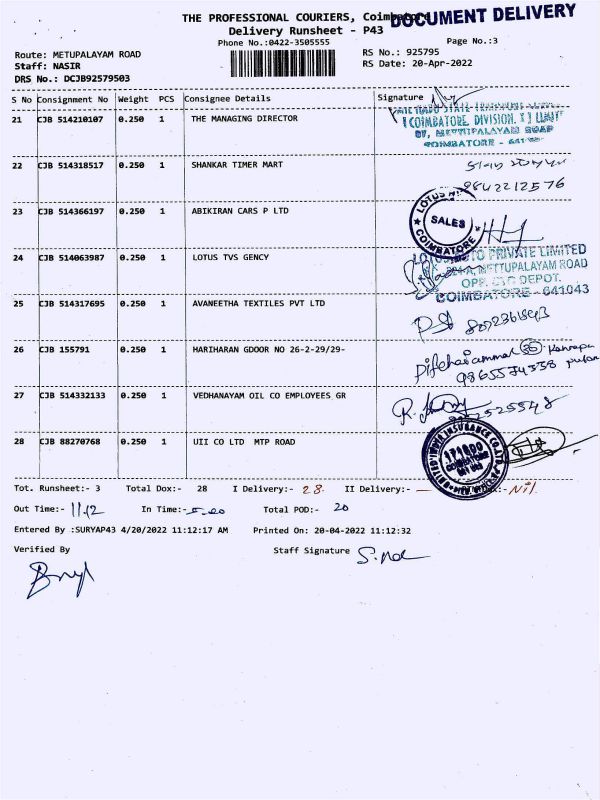 THE PROFESSIONAL COURIERS, Coimbatore
DOCUMENT DELIVERY
Delivery Runsheet - P43
Phone No.:0422-3505555
Page No.:3
Route: METUPALAYAM ROAD
RS No.: 925795
Staff: NASIR
RS Date: 20-Apr-2022
DRS No.: DCJB92579503
S No Consignment No Weight PCS Consignee Details Signature
21 CJB 514210107 0.250 1 THE MANAGING DIRECTOR
COIMBATORE. DIVISION.
COIMBATORE - 641
22 CJB 514318517 0.250 1 SHANKAR TIMER MART
9842212576
23 CJB 514366197 0.250 1 ABIKIRAN CARS P LTD
LOTUS
SALES
COIMBATORE
24 CJB 514063987 0.250 1 LOTUS TVS GENCY
LOTUS AUTO PRIVATE LIMITED
METTUPALAYAM ROAD
OPP. CTC DEPOT.
COIMBATORE - 641043
25 CJB 514317695 0.250 1 AVANEETHA TEXTILES PVT LTD
26 CJB 155791 0.250 1 HARIHARAN GDOOR NO 26-2-29/29-
27 CJB 514332133 0.250 1 VEDHANAYAM OIL CO EMPLOYEES GR
28 CJB 88270768 0.250 1 UII CO LTD MTP ROAD
Tot. Runsheet:- 3 Total Dox:- 28 I Delivery:- 28 II Delivery:- — Nil
Out Time:- 11.12 In Time:- 5.00 Total POD:- 20
Entered By :SURYAP43 4/20/2022 11:12:17 AM Printed On: 20-04-2022 11:12:32
Verified By Staff Signature